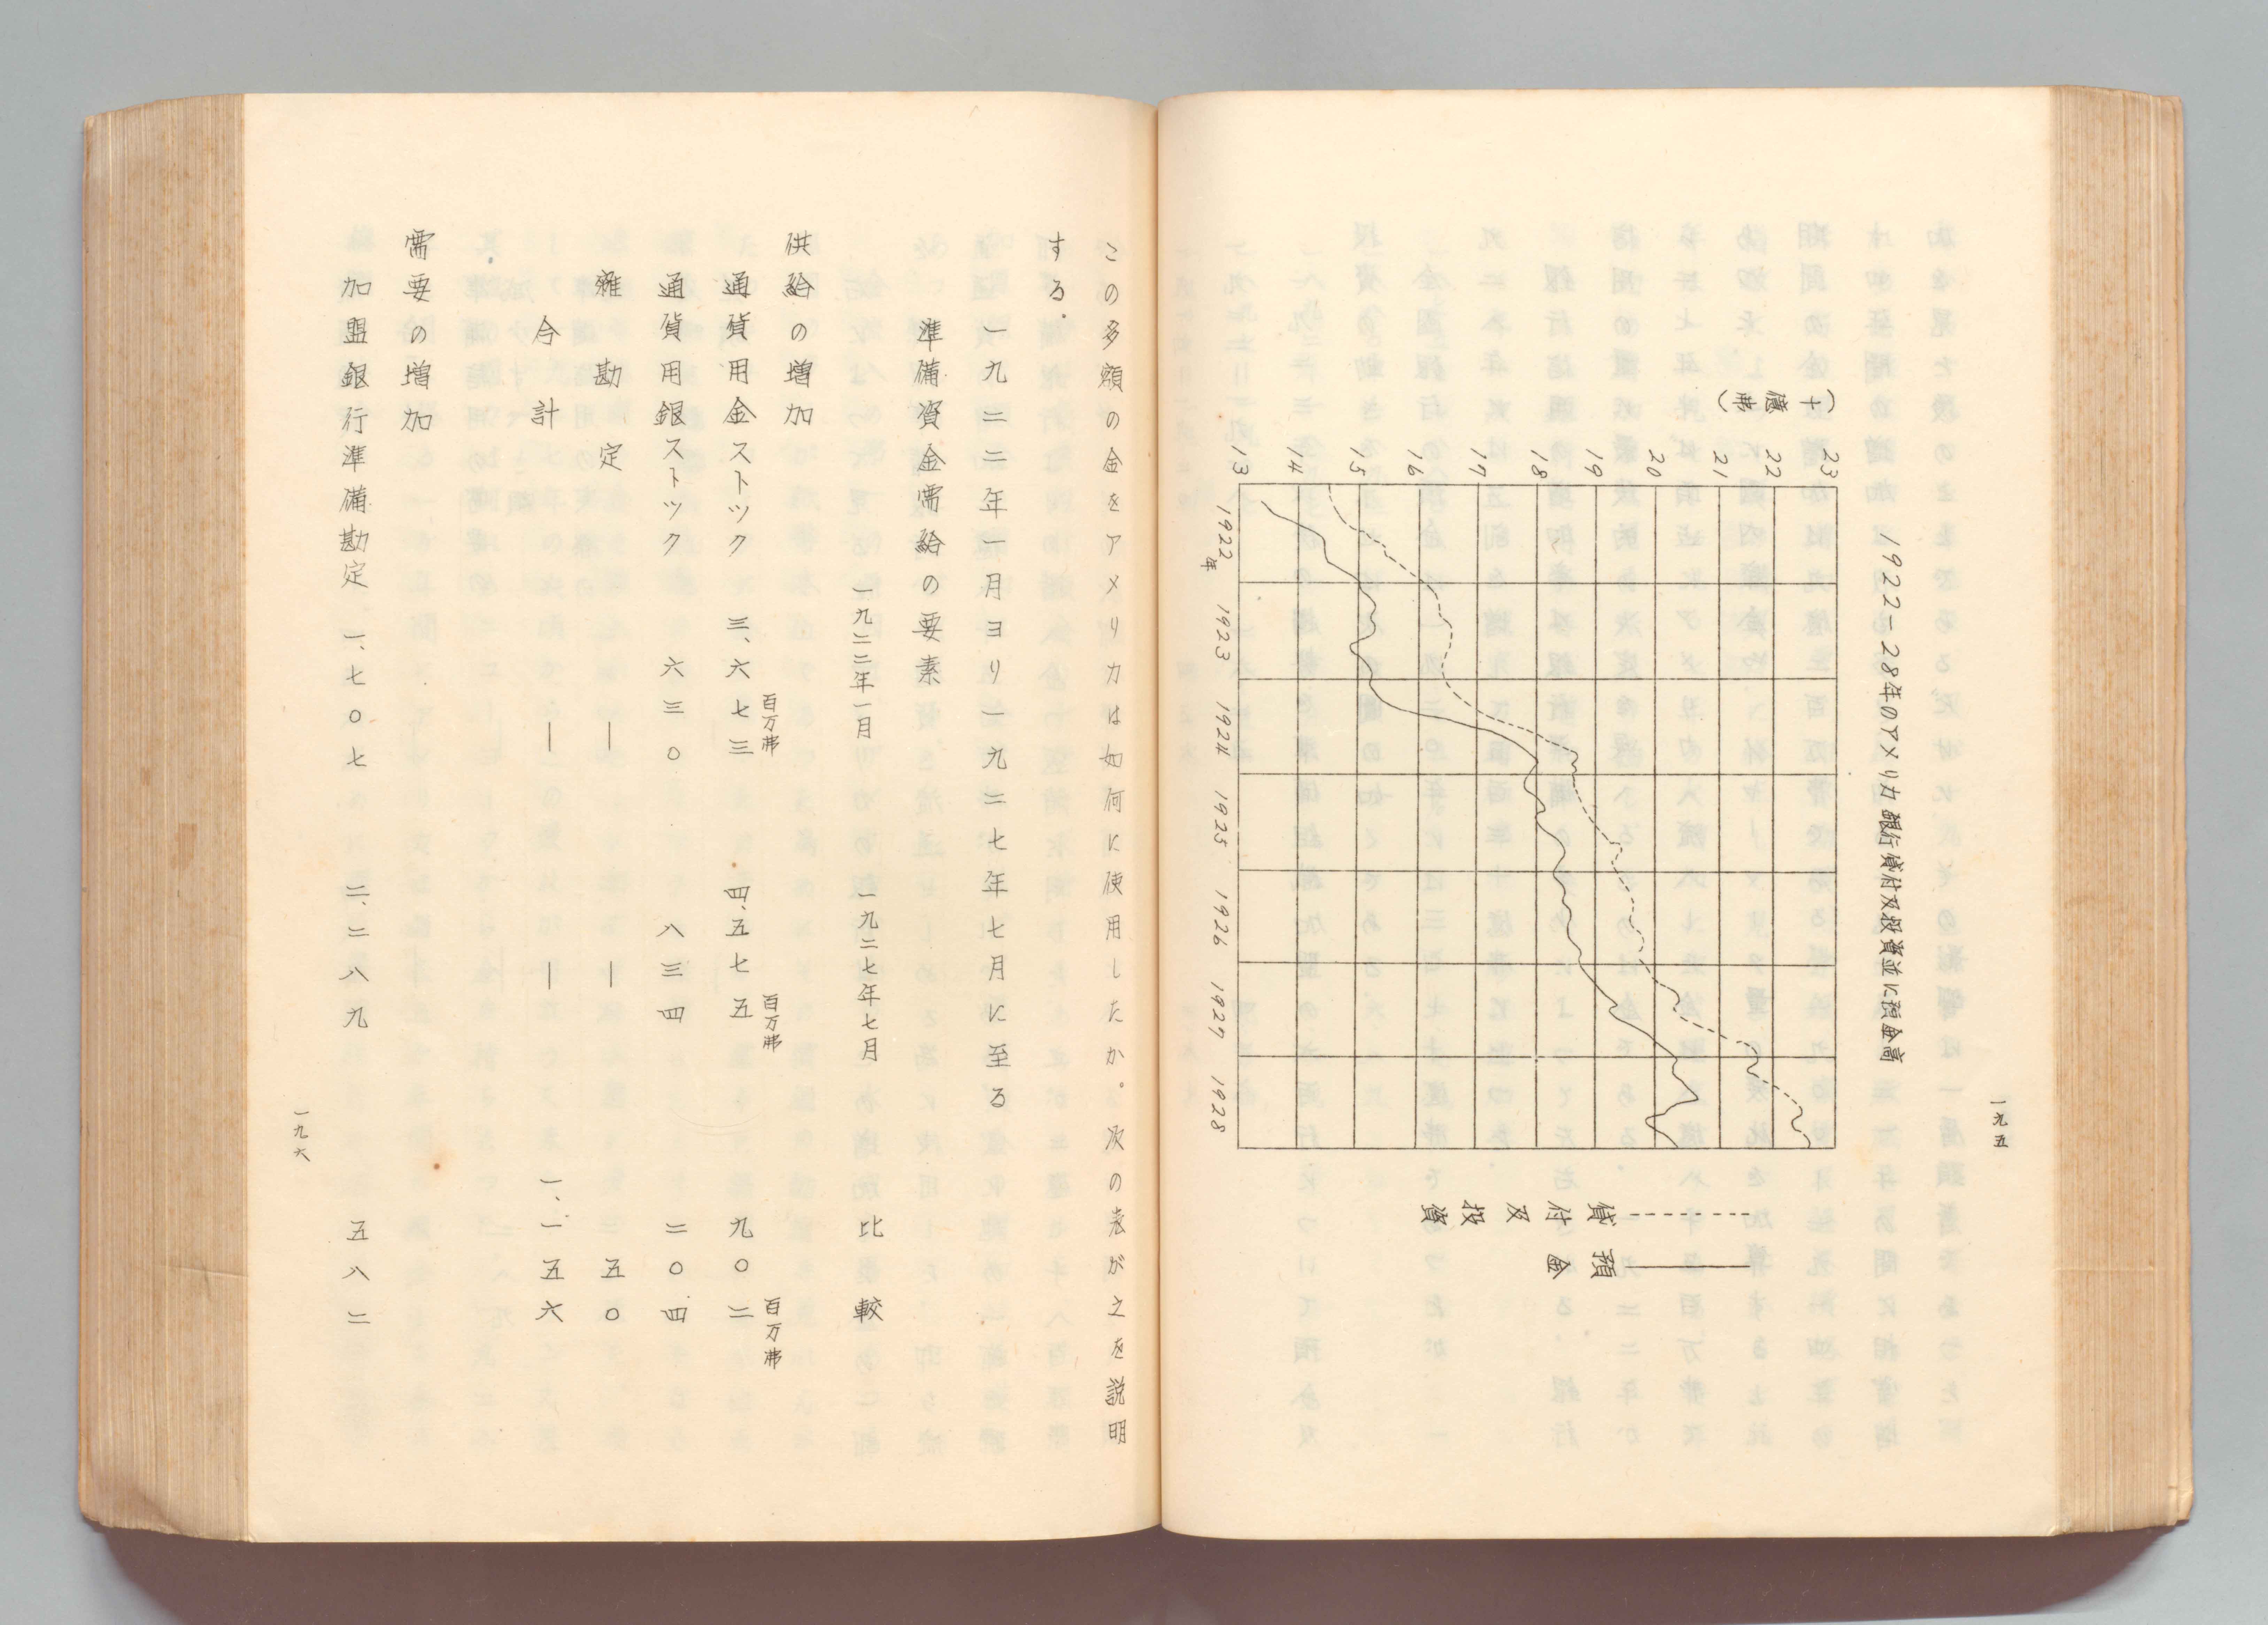 一九五
1922-28年のアメリカ銀行貸付及投資並に預金高
(十億弗)
23
22
21
20
19
18
17
16
15
14
13
1922年
1923
1924
1925
1926
1927
1928
貸付及投資
預金
この多額の金をアメリカは如何に使用したか。次の表が之を説明
する。
一九二二年一月ヨリ一九二七年七月に至る
準備資金需給の要素
一九二二年一月 一九二七年七月 比較
供給の増加
百万弗 百万弗 百万弗
通貨用金ストツク 三、六七三 四、五七五 九〇二
通貨用銀ストツク 六三〇 八三四 二〇四
雑勘定 ― ― 五〇
合計 ― ― 一、一五六
需要の増加
加盟銀行準備勘定 一、七〇七 二、二八九 五八二
一九六